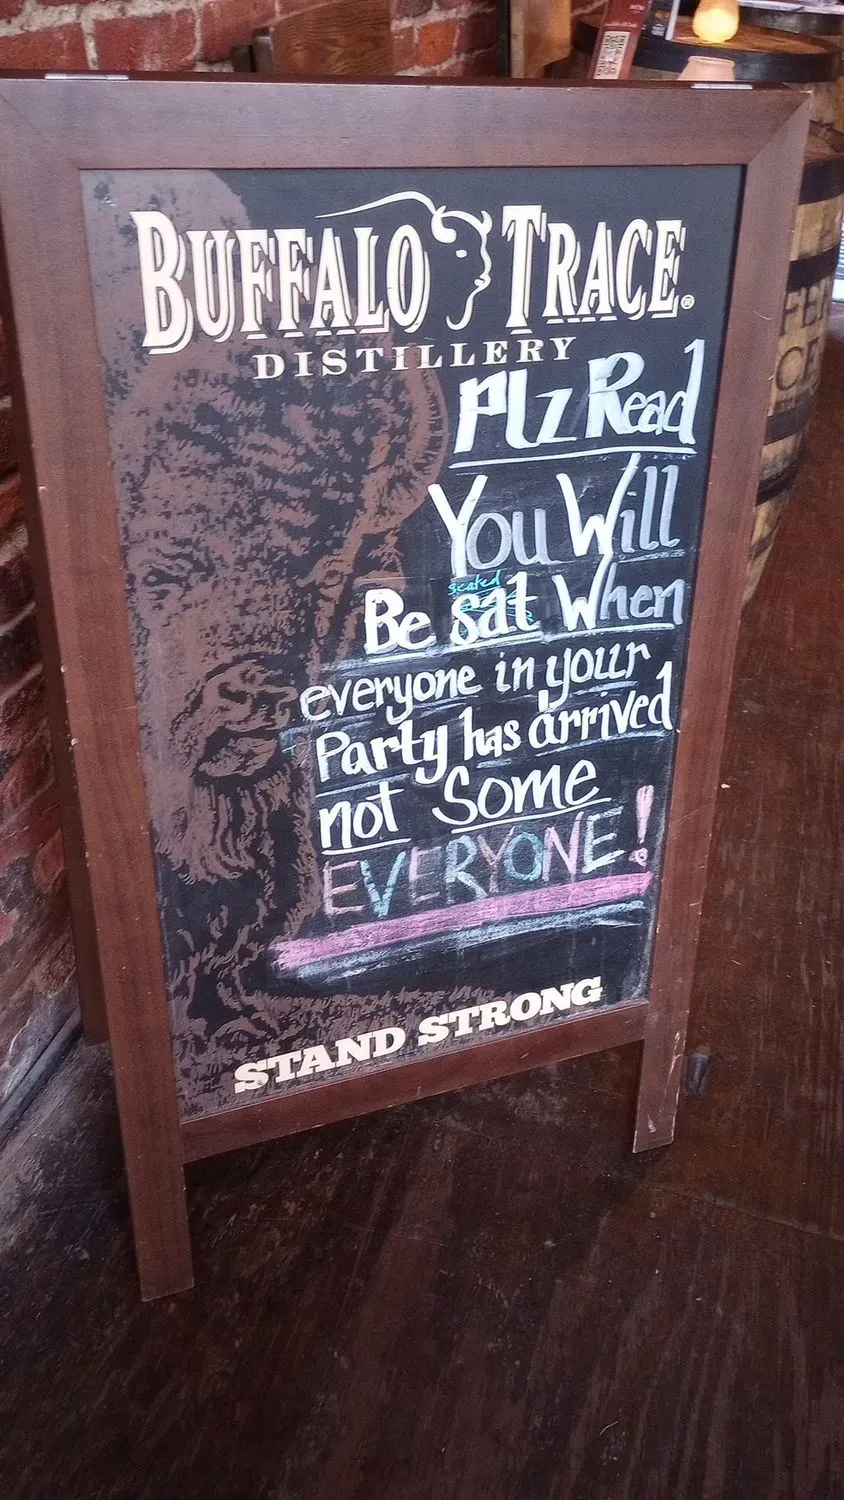 BUFFALO TRACE®
DISTILLERY
Plz Read
You Will
seated
Be sat When
everyone in your
Party has arrived
not Some
EVERYONE!
STAND STRONG